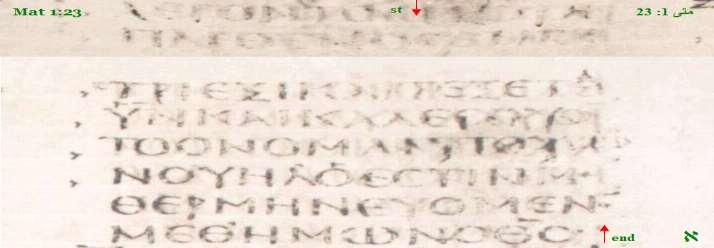 Mat 1:23
st
متى 1: 23
ΤΡΙΕΞΙΚΑΙΤΕΞΕΤΑΙ
ΥΝΚΑΙΚΑΛΕCΟΥCΙ
ΤΟΟΝΟΜΑΑΥΤΟΥ
ΝΟΥΗΛΟΕCΤΙΝΜΕ
ΘΕΡΜΗΝΕΥΟΜΕΝ
ΜΕΘΗΜΩΝΟΘC
end
א